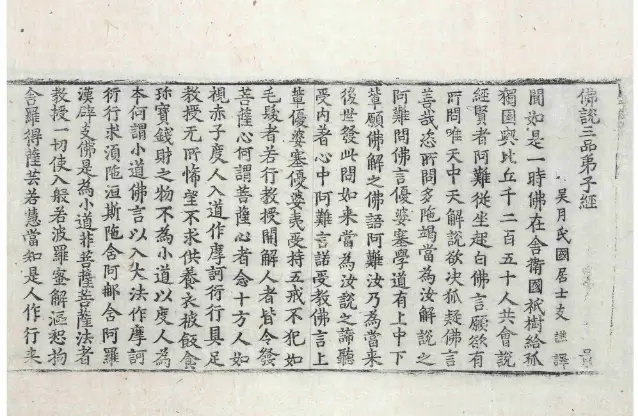 佛說三品弟子經
吴月氏國居士支謙譯
聞如是一時佛在舍衛國祇樹給孤
獨園與比丘千二百五十人共會說
經賢者阿難從坐起白佛言願欲有
所問唯天中天解說欲決狐疑佛言
善哉恣所問多陁竭當為汝解說之
阿難問佛言優婆塞學道有上中下
輩願佛解之佛語阿難汝乃為當来
後世發此問如来當為汝說之諦聽
受內著心中阿難言諾受教佛言上
輩優婆塞優婆夷受持五戒不犯如
毛髮者若行教授開解人者皆令發
菩薩心何謂菩薩心者念十方人如
視赤子度人入道作摩訶衍行具足
教授无所悕望不求供養衣被飯食
珎寶錢財之物不為小道以度人為
本何謂小道佛言以入大法作摩訶
衍行求湏陁洹斯陁含阿那含阿羅
漢辟支佛是為小道非菩薩菩薩法者
教授一切使入般若波羅蜜解漚惒拘
舍羅得薩芸若慧當知是人作行来